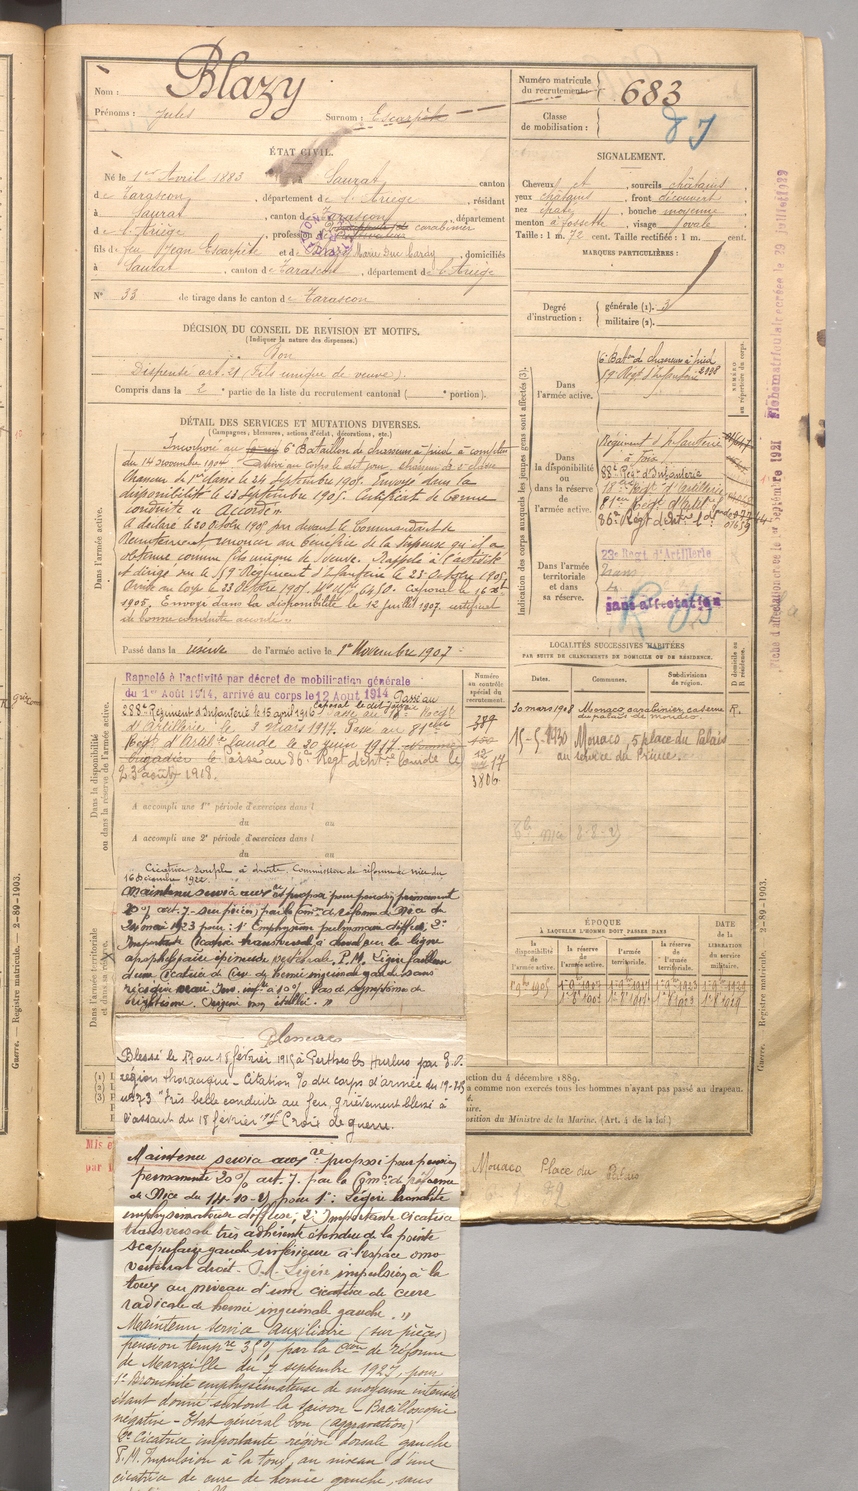 Nom : Blazy
Prénoms : Jules Surnom : Escarpète
Numéro matricule
du recrutement : 683
Classe
de mobilisation :
ÉTAT CIVIL.
Né le 1er Avril 1883 à Saurat, canton
de Tarascon, département de l'Ariège, résidant
à Saurat, canton de Tarascon, département
de l'Ariège, profession de carabinier
fils de feu Jean Escarpète et de Marie domiciliés
à Saurat, canton de Tarascon, département de l'Ariège
N° 33 de tirage dans le canton de Tarascon
SIGNALEMENT.
Cheveux et, sourcils châtains
yeux châtains, front découvert
nez épaté, bouche moyenne
menton à fossette, visage ovale
Taille : 1 m. 72 cent. Taille rectifiée : 1 m. cent.
MARQUES PARTICULIÈRES :
Degré
d'instruction :
générale (1). 3
militaire (2).
DÉCISION DU CONSEIL DE REVISION ET MOTIFS.
(Indiquer la nature des dispenses.)
Bon
Dispensé art. 21 (Fils unique de veuve).
Compris dans la 2e partie de la liste du recrutement cantonal ( e portion).
DÉTAIL DES SERVICES ET MUTATIONS DIVERSES.
(Campagnes, blessures, actions d'éclat, décorations, etc.)
Dans l'armée active.
Incorporé au 6e Bataillon de chasseurs à pied à compter
du 14 novembre 1904. Arrivé au corps le dit jour, chasseur de 2e classe
Chasseur de 1ère classe le 24 Septembre 1905. Envoyé dans la
disponibilité le 23 Septembre 1905. Certificat de bonne
conduite "Accordé"
A déclaré le 20 Octobre 1905 par devant le Commandant de
Recrutement renoncer au bénéfice de la dispense qu'il a
obtenue comme fils unique de Veuve. Rappelé à l'activité
et dirigé sur le 59e Régiment d'Infanterie le 23 Octobre 1905
Arrivé au corps le 23 Octobre 1905, No Mle 6450. Caporal le 16
1905. Envoyé dans la disponibilité le 12 Juillet 1907. certificat
de bonne conduite accordé
Passé dans la réserve de l'armée active le 1er Novembre 1907
Indication des corps auxquels les jeunes gens sont affectés (3).
NUMÉRO
au répertoire du corps.
Dans
l'armée active.
6e Baton de chasseurs à pied
59e Régt d'Infanterie
Dans
la disponibilité
ou dans la réserve
de l'armée active.
Régiment d'Infanterie
à Foix
88e Régt d'Infanterie
81ème Régt d'Artillie
86e Régt d'Artie
Dans l'armée
territoriale
et dans
sa réserve.
23e Régt d'Artillerie
sans affectation
Fiche matriculaire créée le 29 Juillet 1929
Fiche d'affectation créée le 1er Septembre 1921
Dans la disponibilité
ou dans la réserve de l'armée active.
Rappelé à l'activité par décret de mobilisation générale
du 1er Août 1914, arrivé au corps le 12 Aout 1914 Passé au
258e Régiment d'Infanterie le 15 avril 1916 Caporal le dit jour Passé au Régt
d'Artillerie le 3 mars 1917. Passé au 81ème
Régt d'Artie lourde le 20 juin 1917
brigadier le Passé au 86e Régt d'Artie lourde le
23 août 1918.
Numéro
au contrôle
spécial du
recrutement.
389
12
17
3806
A accompli une 1re période d'exercices dans l
du au
A accompli une 2e période d'exercices dans l
du au
LOCALITÉS SUCCESSIVES HABITÉES
PAR SUITE DE CHANGEMENTS DE DOMICILE OU DE RÉSIDENCE.
Dates. Communes. Subdivisions
de région.
D domicile ou
R résidence.
30 mars 1908 Monaco, carabinier, caserne R.
du palais de monaco.
15-5-1930 Monaco, 5 place du Palais
au service du Prince.
ÉPOQUE
À LAQUELLE L'HOMME DOIT PASSER DANS
la
disponibilité
de
l'armée active.
la réserve
de
l'armée active.
l'armée
territoriale.
la réserve
de l'armée
territoriale.
DATE
de la
LIBÉRATION
du service
militaire.
Dans l'armée territoriale
et dans sa réserve.
Cicatrice souple à droite. Commission de réforme de Nice du
16 Décembre 1922
Maintenu service auxre et proposé pour pension permanente
20% art. 7 - sur pièces) par la Comon de réforme de Nice du
24 mai 1923 pour : 1° Emphysème pulmonaire diffus, 2°
Importante cicatrice transversale à cheval sur la ligne
apophysaire épineuse vertébrale. P.M. Légère faiblesse
d'une cicatrice de cure de hernie inguinale gauche sans
récidive vraie Inv. infre à 10% Pas de symptôme de
brightisme. Origine non établie. "
Blessures
Blessé le 17 au 18 février 1915 à Perthes les Hurlus par E.O.
région thoracique - Citation % du corps d'armée du 19-3-15
n° 73 "Très belle conduite au feu, grièvement blessé à
l'assaut du 18 février 1915 Croix de guerre.
Maintenu service auxre proposé pour pension
permanente 20% art. 7. par la Comon de réforme
de Nice du 14-10-25 pour 1° : Légère bronchite
emphysémateuse diffuse : 2° Importante cicatrice
transversale très adhérente étendue de la pointe
scapulaire gauche inférieure à l'espace omo
vertébral droit. P.M. Légère impulsion à la
toux au niveau d'une cicatrice de cure
radicale de hernie inguinale gauche. "
Maintenu service auxiliaire (sur pièces)
pension tempre 35% par la Comon de réforme
de Marseille du 7 septembre 1927, pour
1° Bronchite emphysémateuse de moyenne intensité
étant donné surtout la saison - Bacilloscopie
négative - Etat général bon (aggravation)
2° Cicatrice importante région dorsale gauche
P.M. Impulsion à la toux, au niveau d'une
cicatrice de cure de hernie gauche, sans
ction du 4 décembre 1889.
a comme non exercés tous les hommes n'ayant pas passé au drapeau.
position du Ministre de la Marine. (Art. 4 de la loi)
Monaco Place du Palais
Guerre. — Registre matricule. — 2-89-1903.
Guerre. — Registre matricule. — 2-89-1903.